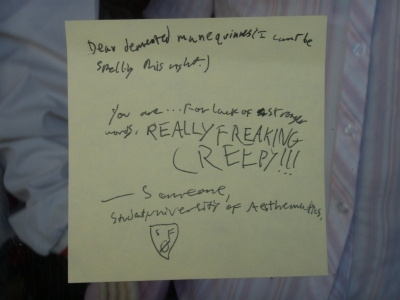 Dear demented manequinnes (I cant be
spelling this right.)
You are... for lack of stronger
words, REALLY FREAKING
CREEPY!!!
— Someone,
University of Aesthematics.
S F